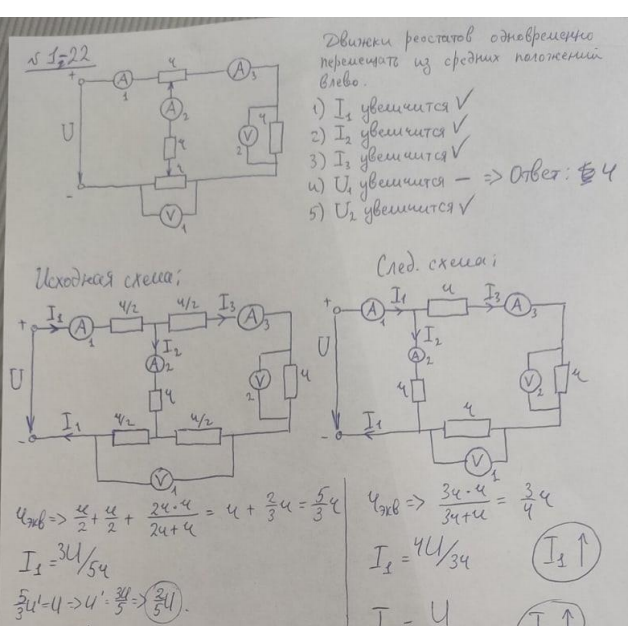 № 1.22
Движки реостатов одновременно
перемещать из средних положений
влево.
1) I₁ увеличится ✓
2) I₂ увеличится ✓
3) I₃ увеличится ✓
4) U₁ увеличится — => Ответ: 4
5) U₂ увеличится ✓
+ A 1 ч A 3
A 2
U ч V 2 ч
- ч
V 1
Исходная схема;
След. схема;
+ I₁ A 1 ч/2 ч/2 I₃ A 3
I₂
A 2
U ч V 2 ч
- I₁ ч/2 ч/2
V 1
+ A 1 I₁ ч I₃ A 3
I₂
A 2
U ч V 2 ч
- I₁ ч
V 1
чэкв => ч/2 + ч/2 + 2ч·ч/2ч+ч = ч + 2/3ч = 5/3ч
I₁ = 3U/5ч
5/3U' = U => U' = 3U/5 => 2/5U.
чэкв => 3ч·ч/3ч+ч = 3/4ч
I₁ = 4U/3ч I₁ ↑